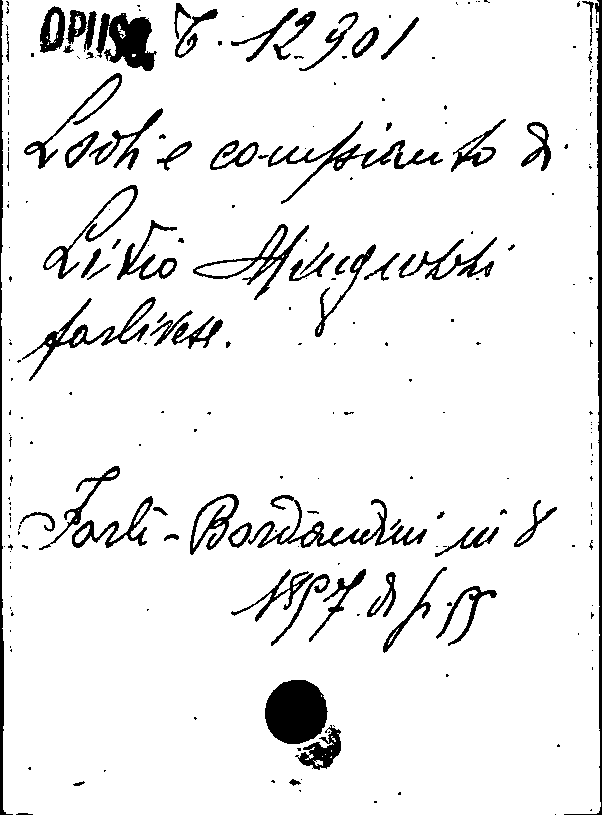 OPUSC T. 12301
Lodi e compianto di
Livio Minguobbi
forlivese.
Forlì - Bordandini in 8
1857 di p. 15